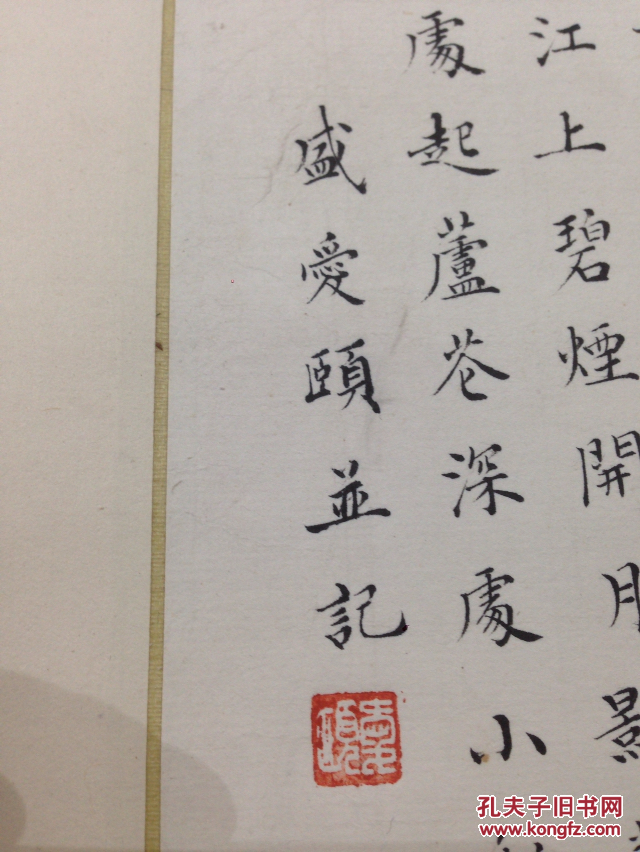 江上碧煙開月影
處起蘆花深處小
盛愛頤並記
孔夫子旧书网
www.kongfz.com